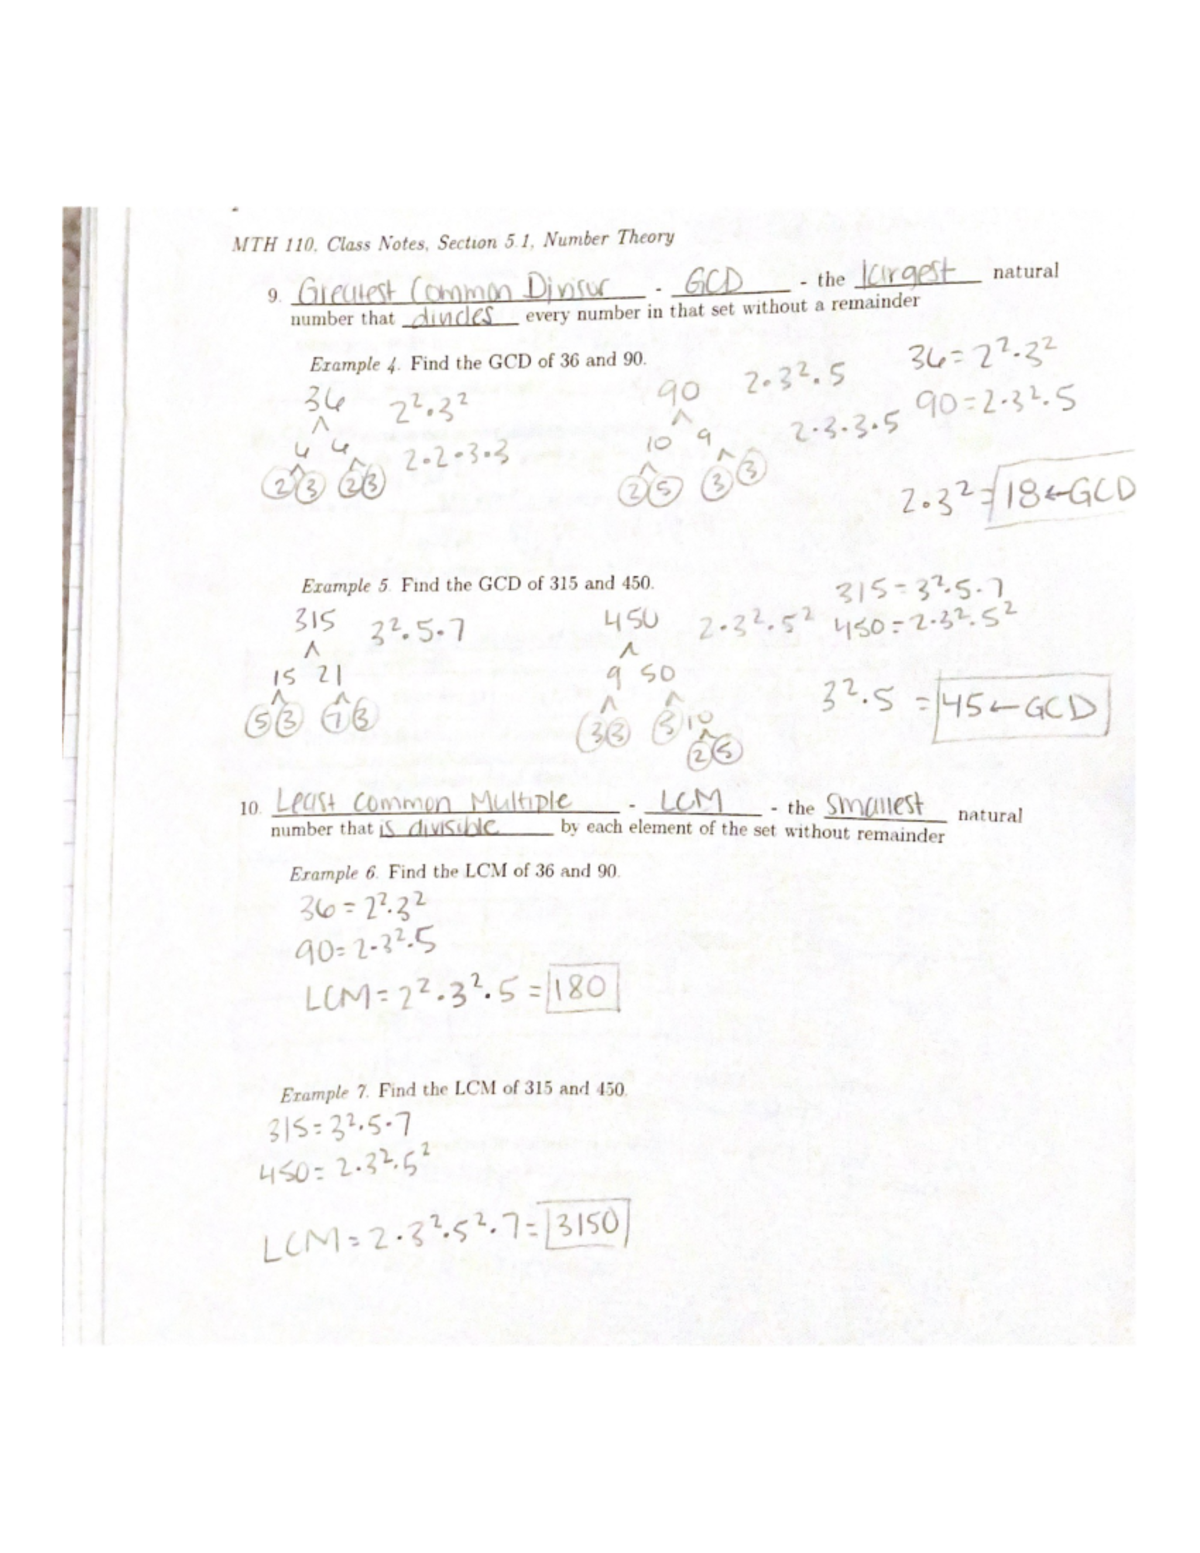 MTH 110, Class Notes, Section 5.1, Number Theory
9. Greatest Common Divisor - GCD - the largest natural
number that divides every number in that set without a remainder
Example 4. Find the GCD of 36 and 90.
36 2²·3² 90 2·3²·5 36=2²·3²
6 6 2·2·3·3 10 9 2·3·3·5 90=2·3²·5
2 3 2 3 2 5 3 3
2·3²=18←GCD
Example 5. Find the GCD of 315 and 450.
315 3²·5·7 450 2·3²·5² 315=3²·5·7
450=2·3²·5²
15 21 9 50
5 3 7 3 3 3 5 10
2 5
3²·5=45←GCD
10. Least Common Multiple - LCM - the smallest natural
number that is divisible by each element of the set without remainder
Example 6. Find the LCM of 36 and 90.
36=2²·3²
90=2·3²·5
LCM=2²·3²·5=180
Example 7. Find the LCM of 315 and 450.
315=3²·5·7
450=2·3²·5²
LCM=2·3²·5²·7=3150